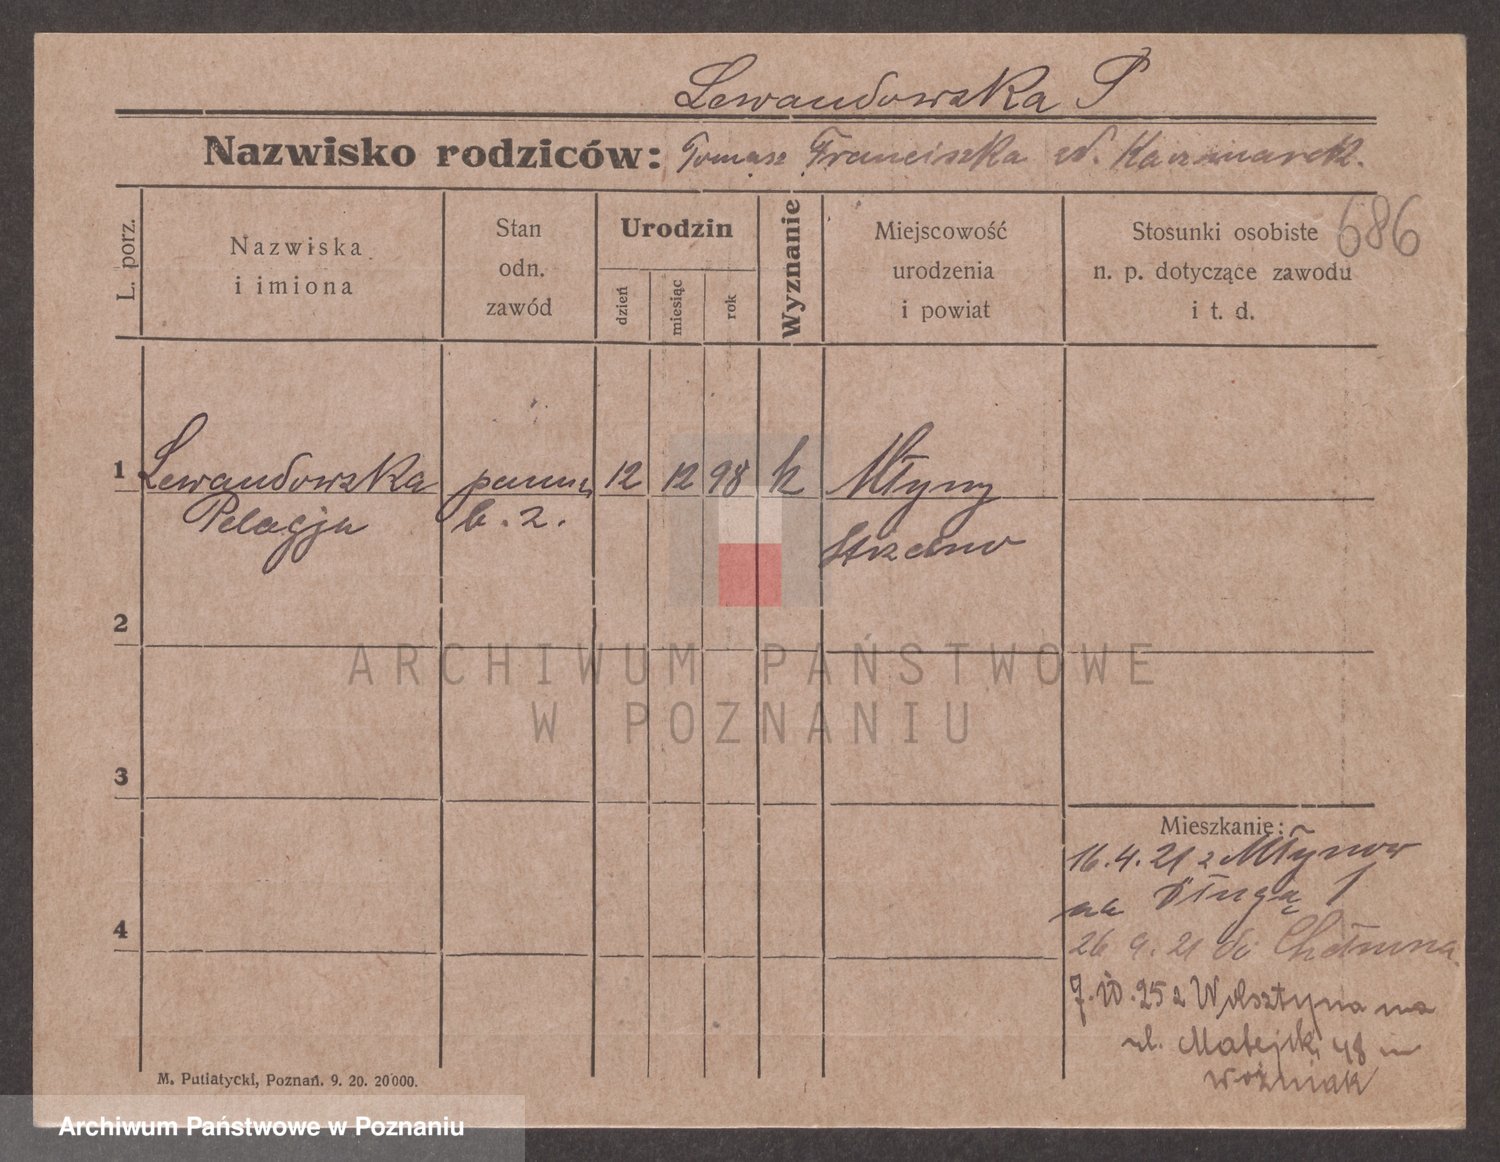 Lewandowska P
Nazwisko rodziców: Tomasz Franciszka zd. Kaczmarek.
686
L. porz.
Nazwiska
i imiona
Stan
odn.
zawód
Urodzin
dzień
miesiąc
rok
Wyznanie
Miejscowość
urodzenia
i powiat
Stosunki osobiste
n. p. dotyczące zawodu
i t. d.
1 Lewandowska panna 12 12 98 k Młyny
Pelagja b. z. Strzelno
2
3
4
Mieszkanie:
16.4.21 z Młynów
na Długą 1
26 9. 21 do Chełmna
7. 10. 25 z Wolsztyna na
ul. Matejki 48
woźniak
M. Putiatycki, Poznań. 9. 20. 20000.
ARCHIWUM PAŃSTWOWE
W POZNANIU
Archiwum Państwowe w Poznaniu